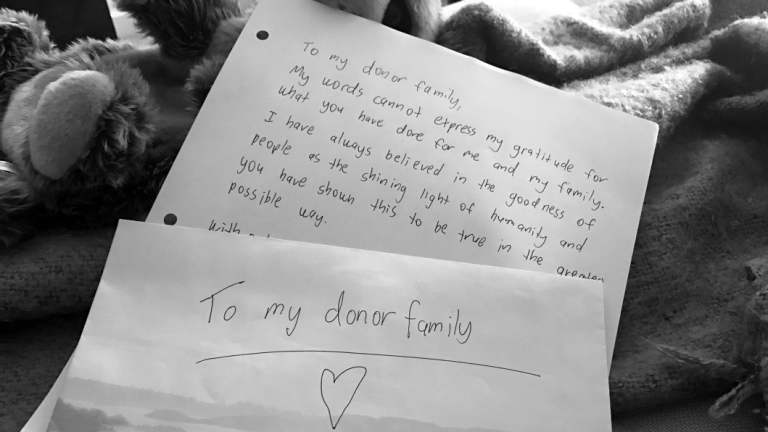 To my donor family,
My words cannot express my gratitude for
what you have done for me and my family.
I have always believed in the goodness of
people as the shining light of humanity and
you have shown this to be true in the
possible way.
To my donor family